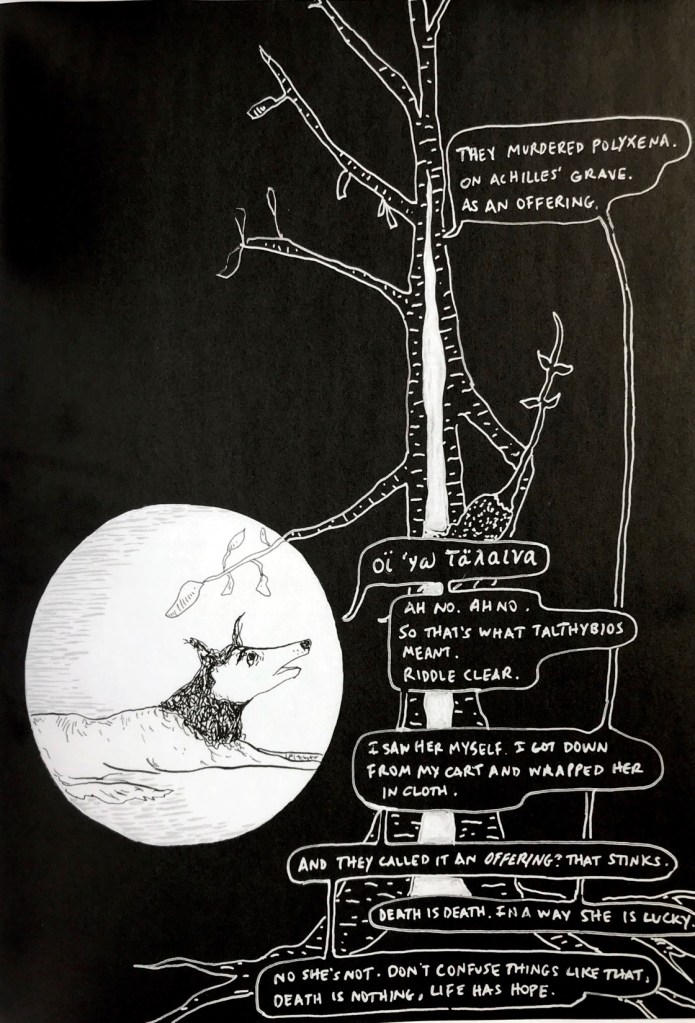 THEY MURDERED POLYXENA.
ON ACHILLES' GRAVE.
AS AN OFFERING.
οϊ 'γω τάλαινα
AH NO. AH NO.
SO THAT'S WHAT TALTHYBIOS
MEANT.
RIDDLE CLEAR.
I SAW HER MYSELF. I GOT DOWN
FROM MY CART AND WRAPPED HER
IN CLOTH.
AND THEY CALLED IT AN OFFERING? THAT STINKS.
DEATH IS DEATH. IN A WAY SHE IS LUCKY.
NO SHE'S NOT. DON'T CONFUSE THINGS LIKE THAT.
DEATH IS NOTHING, LIFE HAS HOPE.